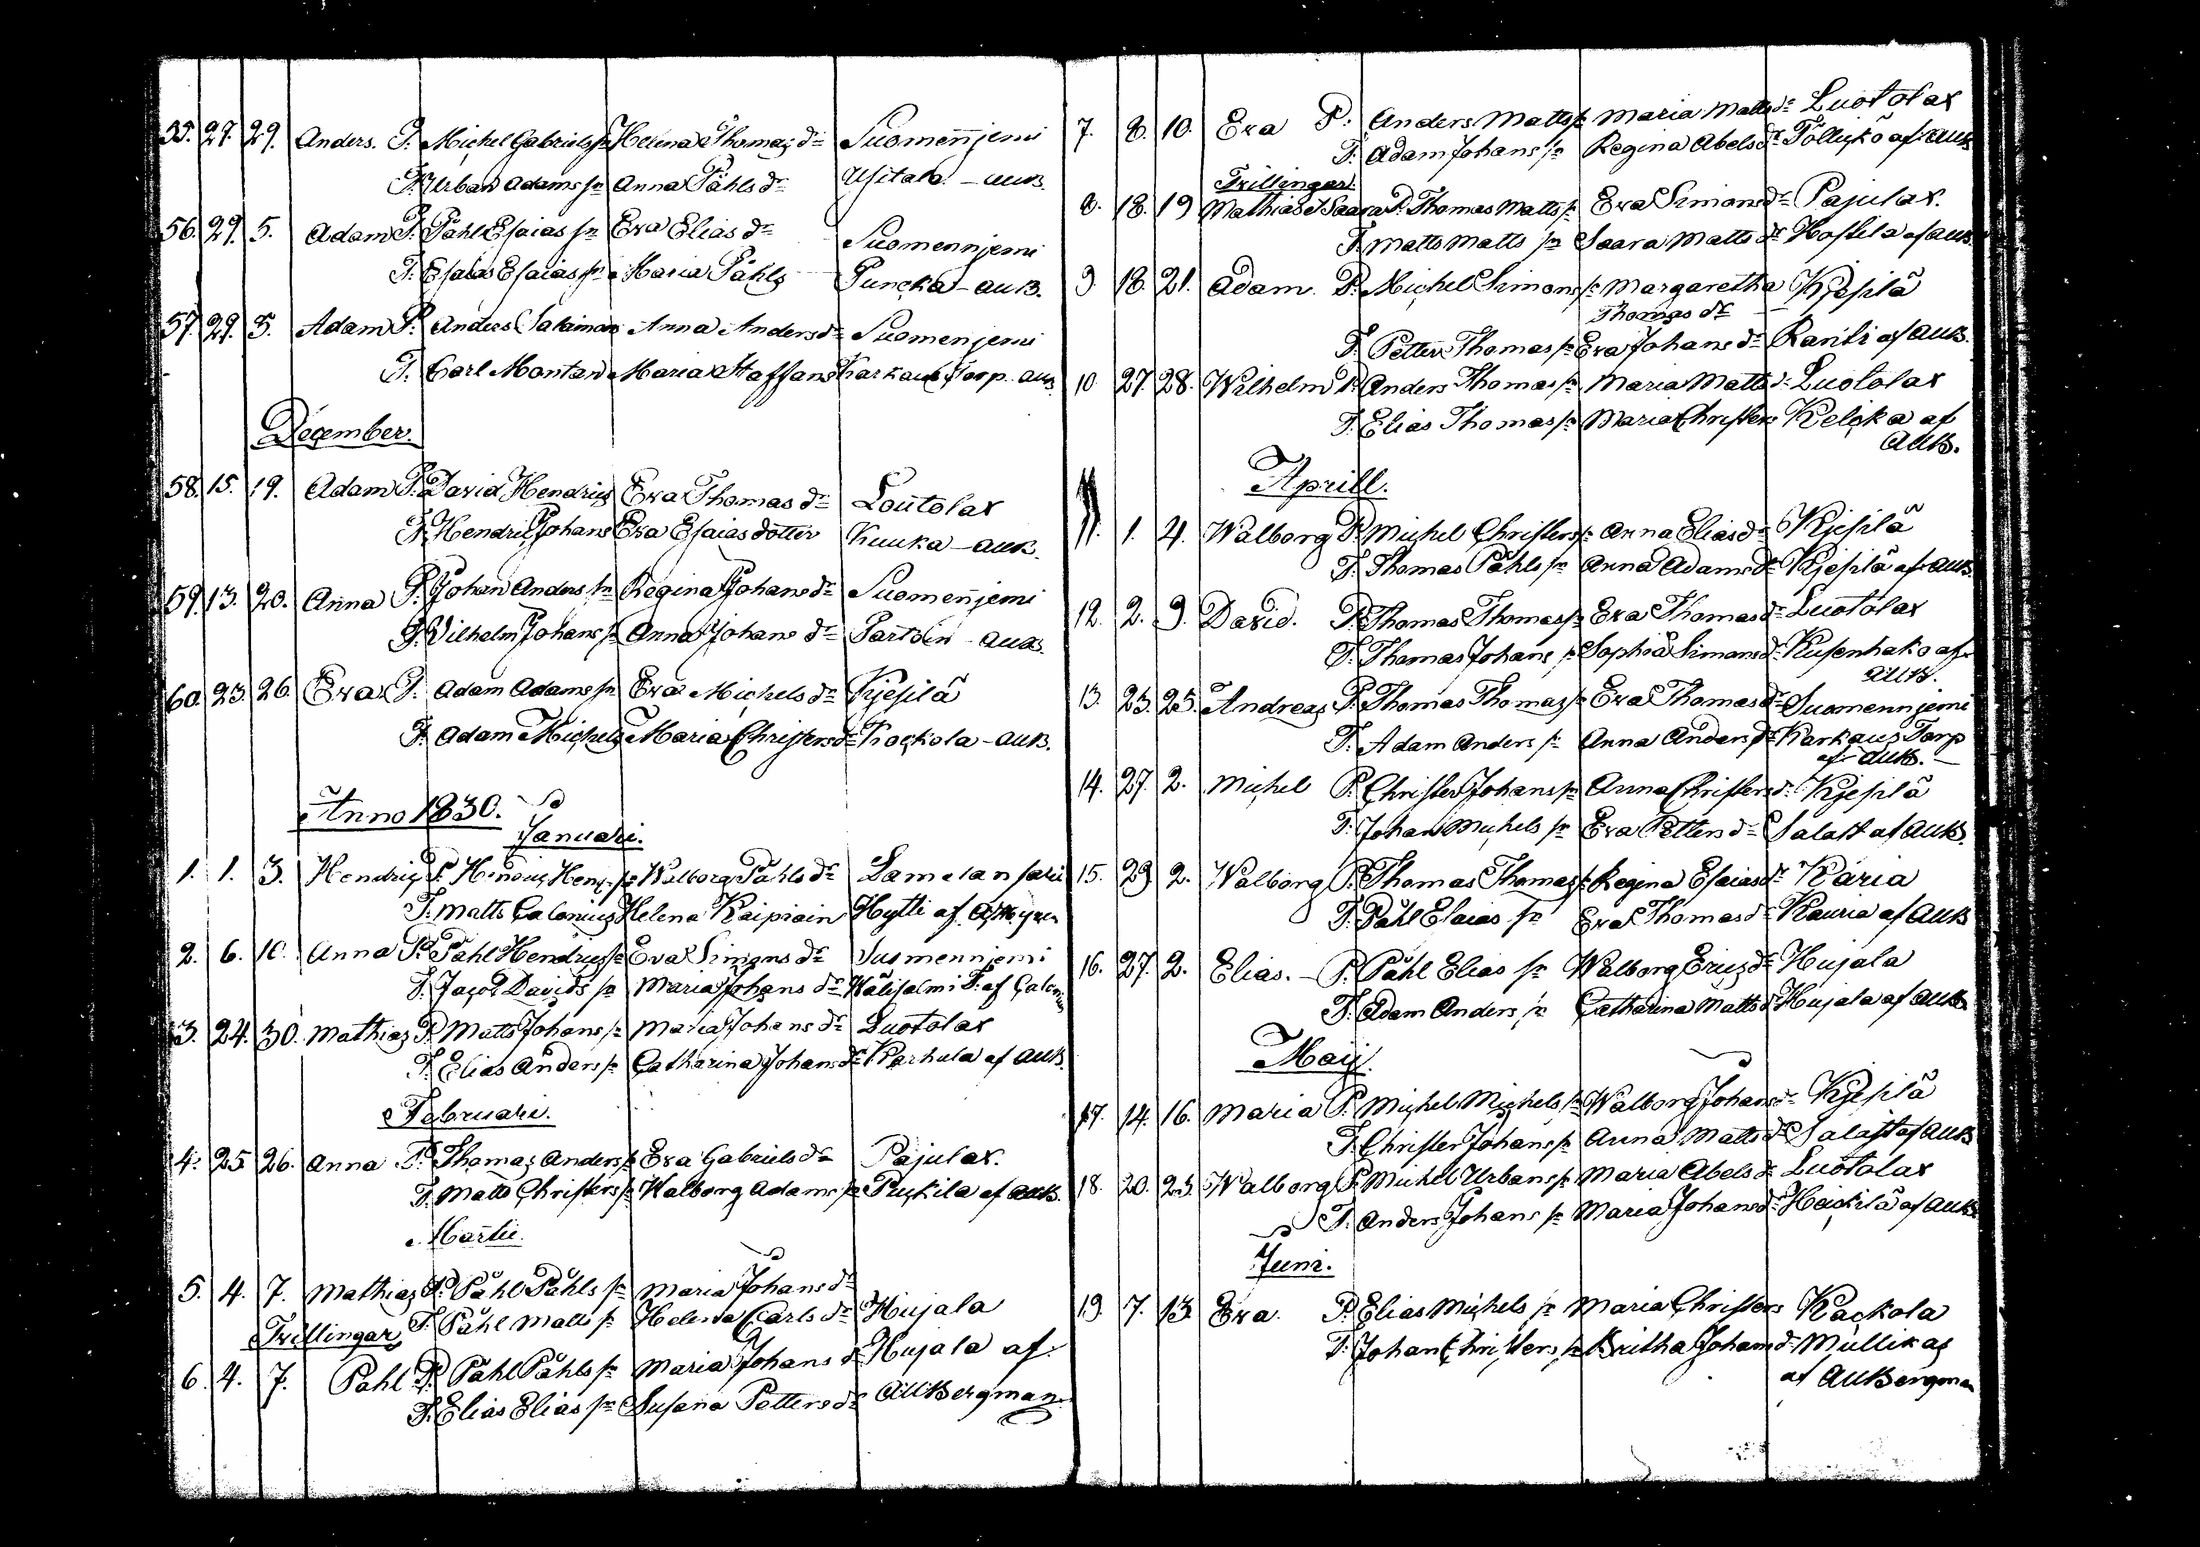 55. 27. 29. Anders. P. Michel Gabriels sn Helena Thomas dr Suomenjemi
T. Urban Adams sn Anna Påhls dr Usitalo - AUB.
56. 29. 5. Adam P. Påhl Esaias sn Eva Elias dr Suomennjemi
T. Esaias Esaias sn Maria Påhls Puncka - AUB.
57. 29. 5. Adam P. Anders Salaimon Anna Anders dr Suomenjemi
T. Carl Montan Maria Staffans Karkaus Torp. AUB
December.
58. 15. 19. Adam P. David Hendrics Eva Thomas dr Loutolax
T. Hendric Johans Eva Esaias dotter Kuuka - AUB.
59. 13. 20. Anna P. Johan Anders sn Regina Johans dr Suomenjemi
T. Vilhelm Johans sn Anna Johans dr Partoin - AUB.
60. 23. 26. Eva P. Adam Adams sn Eva Michels dr Kjesilä
T. Adam Michels Maria Christers dr Kockola - AUB.
Anno 1830.
Januari.
1. 1. 3. Hendric P. Hendric Henr. sn Walborg Påhls dr Lamelansari
T. Matts Calonius Helena Kaipiain Hytti af
2. 6. 10. Anna P. Påhl Hendrics sn Eva Simons dr Suomennjemi
T. Jacob Davids sn Maria Johans dr Wälisalmi T. af Calonius
3. 24. 30. Mathias P. Matts Johans sn Maria Johans dr Luotolax
T. Elias Anders sn Catharina Johans dr Karhula af AUB.
Februari.
4. 25 26. Anna P. Thomas Anders sn Eva Gabriels dr Pajulax.
T. Matts Christers sn Walborg Adams sn Pyckila af AUB.
Martii.
5. 4. 7. Mathias P. Påhl Påhls sn Maria Johans dr
T. Påhl Matts sn Helena Carls dr Hujala
Trillingar
6. 4. 7. Pahl P. Påhl Påhls sn Maria Johans dr Hujala af
T. Elias Elias sn Susana Petters dr AUBergman
7. 8. 10. Eva P. Anders Matts sn Maria Matts dr Luotolax
T. Adam Johans sn Regina Abels dr Pöllickö af AUB
Trillingar.
8. 18. 19 Mathias & Saara P. Thomas Matts sn Eva Simons dr Pajulax.
T. Matts Matts sn Saara Matts dr Hossila af AUB.
9. 18. 21. Adam. P. Michel Simons sn Margaretha Kjesilä
Thomas dr
T. Petter Thomas sn Eva Johans dr Ranti af AUB.
10. 27. 28. Wilhelm P. Anders Thomas sn Maria Matts dr Luotolax
T. Elias Thomas sn Maria Christers Kelcka af
AUB.
Aprill.
11. 1. 4. Walborg P. Michel Christers sn Anna Elias dr Kjesilä
T. Thomas Påhls sn Anna Adams dr Kjesilä af AUB.
12. 2. 9. David. P. Thomas Thomas sn Eva Thomas dr Luotolax
T. Thomas Johans sn Sophia Simons dr Kusenhako af
AUB.
13. 23. 25. Andreas P. Thomas Thomas sn Eva Thomas dr Suomennjemi
T. Adam Anders sn Anna Anders dr Karkaus Torp
af AUB.
14. 27. 2. Michel P. Christer Johans sn Anna Christers dr Kjesilä
T. Johan Michels sn Eva Petters dr Salast af AUB.
15. 29. 2. Walborg P. Thomas Thomas sn Regina Esaias dr Karia
T. Påhl Elaias sn Eva Thomas dr Kauria af AUB
16. 27. 2. Elias. - P. Påhl Elias sn Walborg Erics dr Hujala
T. Adam Anders sn Catharina Matts dr Hujala af AUB
Maij.
17. 14. 16. Maria P. Michel Michels sn Walborg Johans dr Kjesilä
T. Christer Johans sn Anna Matts dr Salast af AUB
18. 20. 23. Walborg P. Michel Urbans sn Maria Abels dr Luotolax
T. Anders Johans sn Maria Johans dr Heickilä af AUB
Juni.
19. 7. 13. Eva. P. Elias Michels sn Maria Christers Kackola
T. Johan Christers sn Britha Johans dr Mullikas
af AUBergman